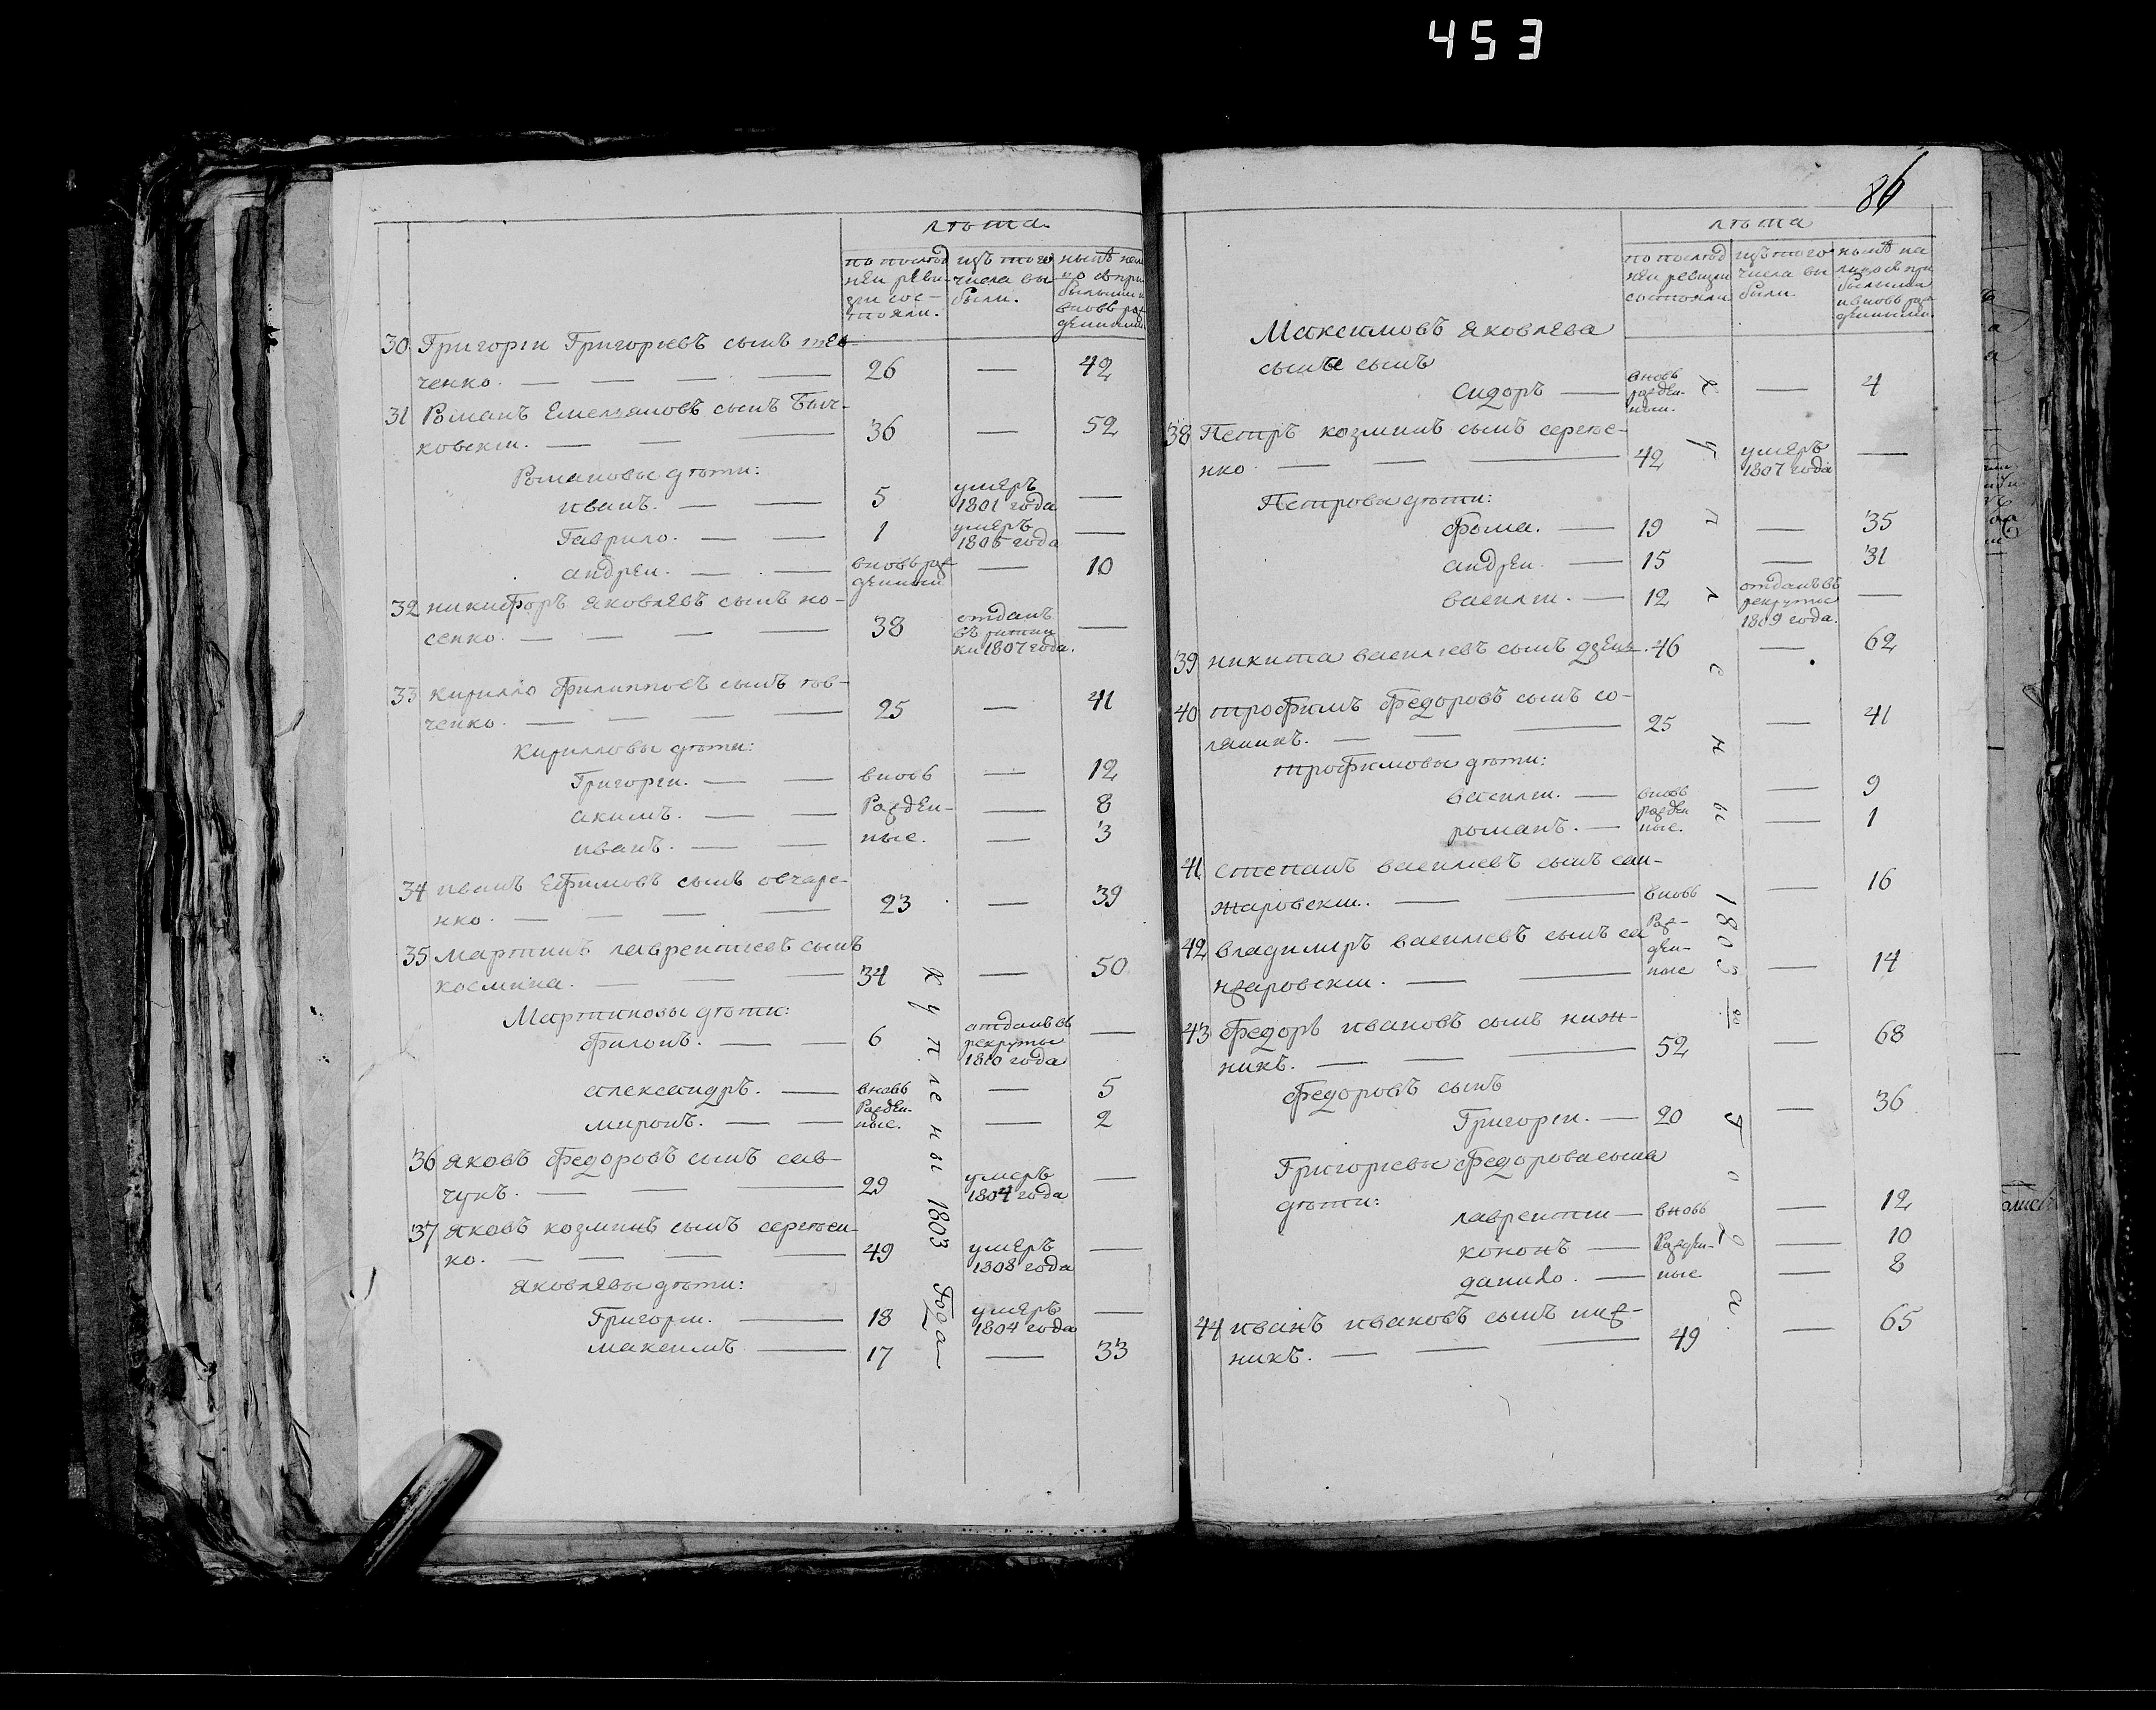 453
86
лѣта.
по послѣд
ней реви-
зіи сос-
тояли.
изъ того
числа вы-
были.
нынѣ на
вновь
30 Григореи Григорьевъ сынъ
ченко. 26 — 42
31 Романъ Емельяновъ сынъ Быч-
ковскіи. 36 — 52
Романовы дѣти:
иванъ. 5 умеръ 1801 года —
Гаврило. 1 умеръ 1805 года —
андреи. вновь рож-
денныи — 10
32 никифоръ яковлевъ сынъ но-
сенко. 38 отданъ
въ
ки 1807 года. —
33 кирило Филиповъ сынъ
ченко. 25 — 41
кириловы дѣти:
Григореи. вновь — 12
акимъ. Рожден- — 8
иванъ. ные. — 3
34 иванъ Ефимовъ сынъ овчаре-
нко. 23 — 39
35 мартинъ лаврентиевъ сынъ
космина. 34 — 50
Мартиновы дѣти:
Филонъ. 6 отданъ въ
рекруты
1810 года —
александръ. вновь — 5
миронъ. Рожден-
ные. — 2
36 яковъ Федоровъ сынъ сав-
чукъ. 29 умеръ
1804 года —
37 яковъ козминъ сынъ сергѣен-
ко. 49 умеръ
1808 года —
яковлевы дѣти:
Григореи. 18 умеръ
1804 года —
максимъ 17 — 33
куплены 1803 Года
лѣта
по послѣд
ней ревизіи
состояли
изъ того
числа вы
были.
нынѣ на
лицо съ при
былыми
и вновь рож
денными.
Максимовъ яковлева
сына сынъ
сидоръ вновь
рожден-
ныи. — 4
38 Петръ козминъ сынъ сергѣе-
нко. 42 умеръ
1807 года —
Петровы дѣти:
фома. 19 — 35
андреи. 15 — 31
василеи. 12 отданъ въ
рекруты
1809 года. —
39 никита василиевъ сынъ 46 — 62
40 трофимъ Федоровъ сынъ со-
ланикъ. 25 — 41
трофимовы дѣти:
василеи. вновь — 9
рожден
романъ. ные. — 1
41 степанъ василиевъ сынъ сан-
жаровскіи. вновь — 16
42 владимиръ василиевъ сынъ са Рож-
ден-
нжаровскіи. ные — 14
43 Федоръ ивановъ сынъ ниж-
никъ. 52 — 68
Федоровъ сынъ
Григореи. 20 — 36
Григориевы Федорова сына
дѣти:
лаврентии вновь — 12
кононъ Рожден- — 10
данило. ные — 8
44 иванъ ивановъ сынъ ниж-
никъ. 49 — 65
куплены 1803 го года.